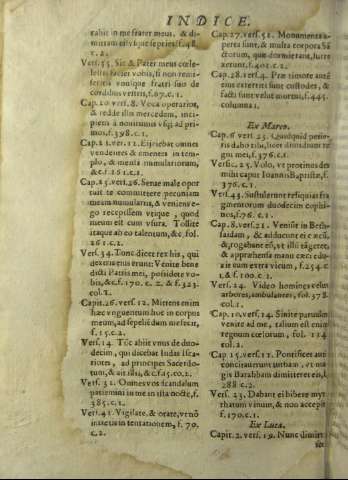 INDICE.
cabit in me frater meus, & di-
mittam ei vsque septies? f.48.
c.2.
Vers.35. Sic & Pater meus cœle-
stis faciet vobis, si non remi-
seritis vnusque fratri suo de
cordibus vestris, f.67.c.1.
Cap.20 vers.8. Voca operarios,
& redde illis mercedem, inci-
piens à nouissimis vsq; ad pri-
mos, f.398.c.1.
Cap.21.vers.12. Eijciebat omnes
vendentes & ementes in tem-
plo, & mensas nummulariorum,
&c.f.161.c.1.
Cap.25.vers.26. Serue male opor
tuit te committere pecuniam
meam numularijs, & veniens e-
go recepissem vtique, quod
meum est cum vsura. Tollite
itaque ab eo talentum, &c. fol.
261.c.2.
Vers.34. Tonc dicet rex his, qui
dextris eius erunt: Venite bene
dicti Patris mei, possidete vo-
bis, &c.f.170. c. 2. & f.323.
col.1.
Capit.26.vers.12. Mittens enim
hæc vnguentum huc in corpus
meum, ad sepeliēdum me fecit,
f.15.c.2.
Vers.14. Tūc abijt vnus de duo-
decim, qui dicebat Iudas Isca-
riotes, ad principes Sacerdo-
tum, & ait illis, &c.f.45.co.2.
Vers. 31. Omnes vos scandalum
patiemini in me in ista nocte, f.
385.c.1.
Vers.41. Vigilate, & orate, vt nō
intretis in tentationem, f. 70.
c.2.
Cap.27.vers.52. Monumenta a-
perta sunt, & multa corpora Sā
ctorum, qui dormierant, surre
xerunt, f.401.c.2.
Cap.28.vers.4. Præ timore autē
eius exterriti sunt custodes, &
facti sunt velut mortui, f.445.
columna 1.
Ex Marco.
Cap.6 vers 23. Quidquid petie-
ris dabo tibi, licet dimidium re
gni mei, f.376.c.1.
Versic.25. Volo, vt protinus des
mihi caput Ioannis Baptistæ, f.
376.c.1.
Vers.43. Sustulerunt reliquias fra
gmentorum duodecim cophi-
nos, f.76.c.2.
Cap.8.vers.21. Venit in Beth-
saidam, & adducunt ei cæcū,
& rogabant eū, vt illū tāgeret,
& apprehensa manu cæci edu-
xit eum extra vicum, f.254.c.
1. & f.100.c.1.
Vers.24. Video homines velut
arbores, ambulantes, fol.378.
col.1.
Cap.10.vers.14. Sinite paruulos
venire ad me, talium est enim
regnum cœlorum, fol. 114
col.1.
Cap.15.vers.11. Pontifices autē
concitauerunt turbam, vt ma-
gis Barabbam dimitteret eis, f.
288 c.2.
Vers. 23. Dabant ei bibere myr
rhatum vinum, & non accepit
f.170.c.1.
Ex Luca.
Capit.2. vers.29. Nunc dimitti